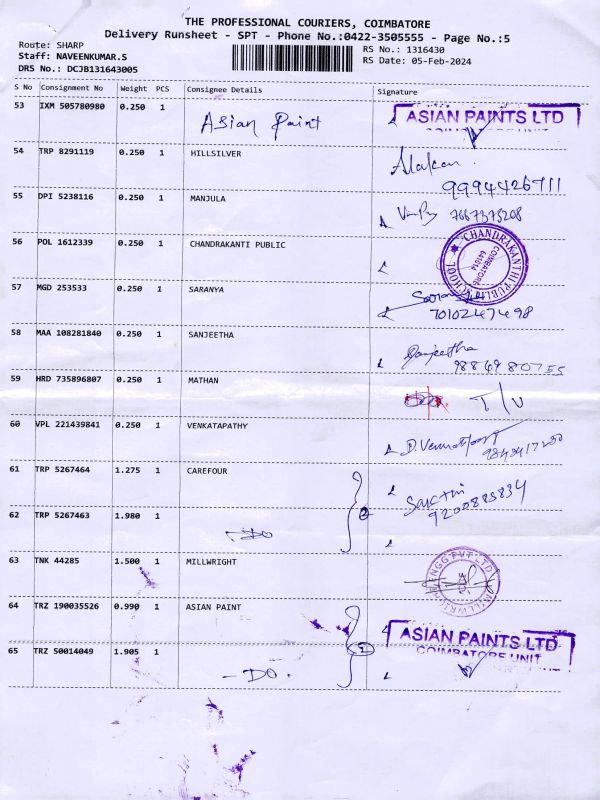 THE PROFESSIONAL COURIERS, COIMBATORE
Delivery Runsheet - SPT - Phone No.:0422-3505555 - Page No.:5
Route: SHARP
RS No.: 1316430
Staff: NAVEENKUMAR.S
RS Date: 05-Feb-2024
DRS No.: DCJB131643005
S No Consignment No Weight PCS Consignee Details Signature
53 IXM 505780980 0.250 1 Asian Paint ASIAN PAINTS LTD
COIMBATORE UNIT
54 TRP 8291119 0.250 1 HILLSILVER
9994426711
55 DPI 5238116 0.250 1 MANJULA 7667375208
56 POL 1612339 0.250 1 CHANDRAKANTI PUBLIC CHANDRAKANTHI PUBLIC SCHOOL
COIMBATORE
641014
57 MGD 253533 0.250 1 SARANYA
7010247498
58 MAA 108281840 0.250 1 SANJEETHA Sanjeetha
9886980755
59 HRD 735896807 0.250 1 MATHAN T/V
60 VPL 221439841 0.250 1 VENKATAPATHY
61 TRP 5267464 1.275 1 CAREFOUR Sakthi
9200883834
62 TRP 5267463 1.980 1 -DO 2
63 TNK 44285 1.500 1 MILLWRIGHT MILLWRIGHT ENGG PVT LTD
64 TRZ 190035526 0.990 1 ASIAN PAINT ASIAN PAINTS LTD
COIMBATORE UNIT
65 TRZ 50014049 1.905 1 -DO.